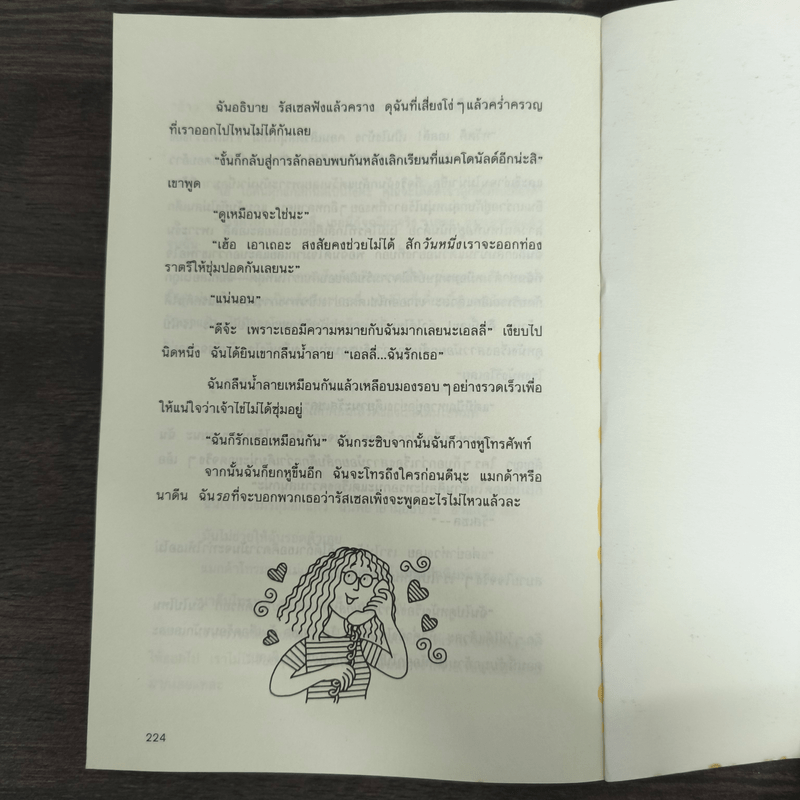 ฉันอธิบาย รัสเซลฟังแล้วคราง ดุฉันที่เสี่ยงโง่ ๆ แล้วคร่ำครวญ
ที่เราออกไปไหนไม่ได้กันเลย
“งั้นก็กลับสู่การลักลอบพบกันหลังเลิกเรียนที่แมคโดนัลต์อีกน่ะสิ”
เขาพูด
“ดูเหมือนจะใช่นะ”
“เฮ้อ เอาเถอะ สงสัยคงช่วยไม่ได้ สักวันหนึ่งเราจะออกท่อง
ราตรีให้ชุ่มปอดกันเลยนะ”
“แน่นอน”
“ดีจ้ะ เพราะเธอมีความหมายกับฉันมากเลยนะเอลลี่” เงียบไป
นิดหนึ่ง ฉันได้ยินเขากลืนน้ำลาย “เอลลี่...ฉันรักเธอ”
ฉันกลืนน้ำลายเหมือนกันแล้วเหลือบมองรอบ ๆ อย่างรวดเร็วเพื่อ
ให้แน่ใจว่าเจ้าไข่ไม่ได้ซุ่มอยู่
“ฉันก็รักเธอเหมือนกัน” ฉันกระซิบจากนั้นฉันก็วางหูโทรศัพท์
จากนั้นฉันก็ยกหูขึ้นอีก ฉันจะโทรถึงใครก่อนดีนะ แมกด้าหรือ
นาดีน ฉันรอที่จะบอกพวกเธอว่ารัสเซลเพิ่งจะพูดอะไรไม่ไหวแล้วละ
224